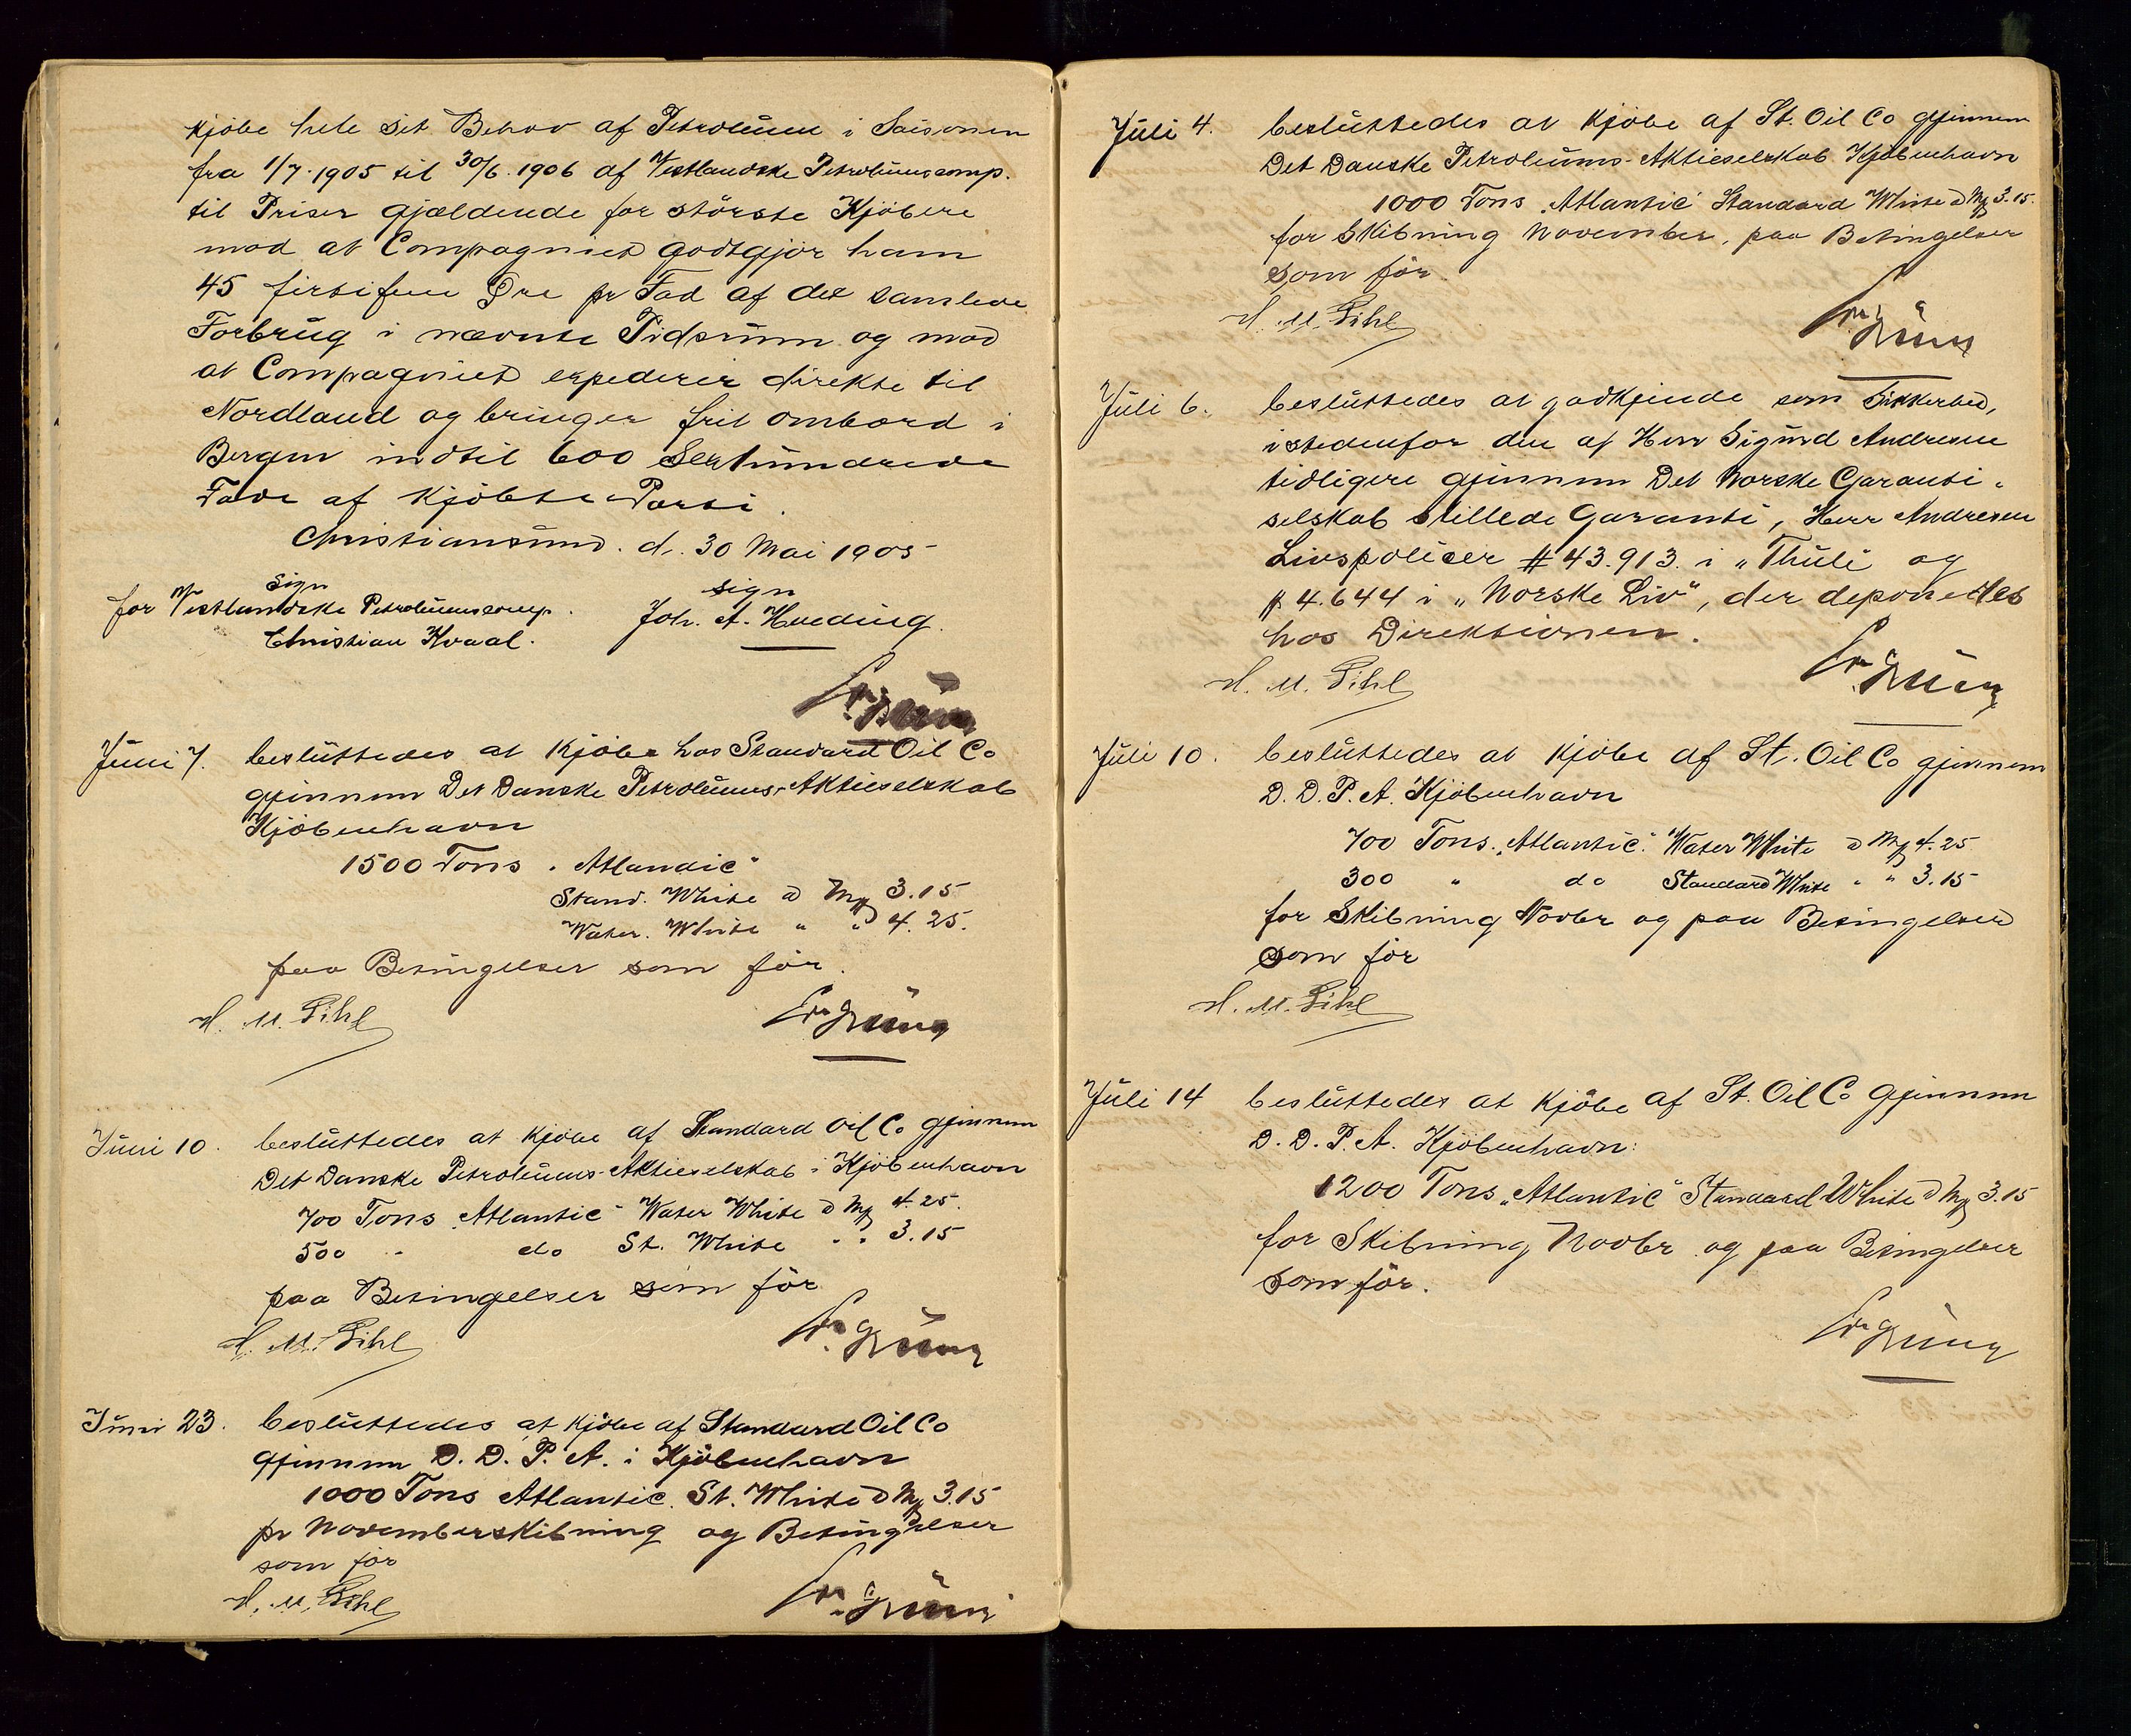 kjöbe hele sit Behov af Petroleum i Saisonen
fra 1/7.1905 til 30/6.1906 af Vestlandske Petroleumscomp.
til Priser gjældende for störste Kjöbere
mod at Compagniet godtgjör ham
45 firtifem Øre pr Fad af det samlede
Forbrug i nævnte Tidsrum og mod
at Compagniet expederer direkte til
Nordland og bringer frit ombord i
Bergen indtil 600 Sexhundrede
Fade af kjöbte Parti.
Christiansund. d. 30 Mai 1905
sign sign
for Vestlandske Petroleumscomp. Joh. A.
Christian Kvaal.
Juni 7. besluttedes at kjöbe hos Standard Oil Co
gjennem Det Danske Petroleums-Aktieselskab
Kjöbenhavn
1500 Tons "Atlandic"
Stand. White a Mk 3.15
Water. White " " 4.25.
paa Betingelser som för.
H. M. Gihl
Juni 10. besluttedes at kjöbe af Standard Oil Co gjennem
Det Danske Petroleums-Aktieselskab i Kjöbenhavn
700 Tons "Atlantic" Water White a Mk 4.25.
500 " do St. White " " 3.15
paa Betingelser som för
H. M. Gihl
Juni 23. besluttedes at kjöbe af Standard Oil Co
gjennem D. D. P. A. i Kjöbenhavn
1000 Tons Atlantic. St. White a Mk 3.15
pr Novemberskibning og Betingelser
som för
H. M. Gihl
Juli 4. besluttedes at kjöbe af St. Oil Co gjennem
Det Danske Petroleums-Aktieselskab Kjöbenhavn
1000 Tons "Atlantic" Standard White a Mk 3.15.
for Skibning November, paa Betingelser
som för.
H. M. Gihl
Juli 6. besluttedes at godkjende som Sikkerhed,
istedenfor den af Herr Sigurd Andresen
tidligere gjennem Det Norske Garanti-
selskab stillede Garanti, Herr Andresen
Livspolicer # 43.913. i "Thule" og
# 4.644 i "Norske Liv", der deponertes
hos Direktionen.
H. M. Gihl
Juli 10. besluttedes at kjöbe af St. Oil Co gjennem
D. D. P. A. Kjöbenhavn
700 Tons. "Atlantic" Water White a Mk 4.25
300 " do Standard White " " 3.15
for Skibning Novbr og paa Betingelser
som för
H. M. Gihl
Juli 14 besluttedes at kjöbe af St. Oil Co gjennem
D. D. P. A. Kjöbenhavn:
1200 Tons "Atlantic" Standard White a Mk 3.15
for Skibning Novbr og paa Betingelser
som för.